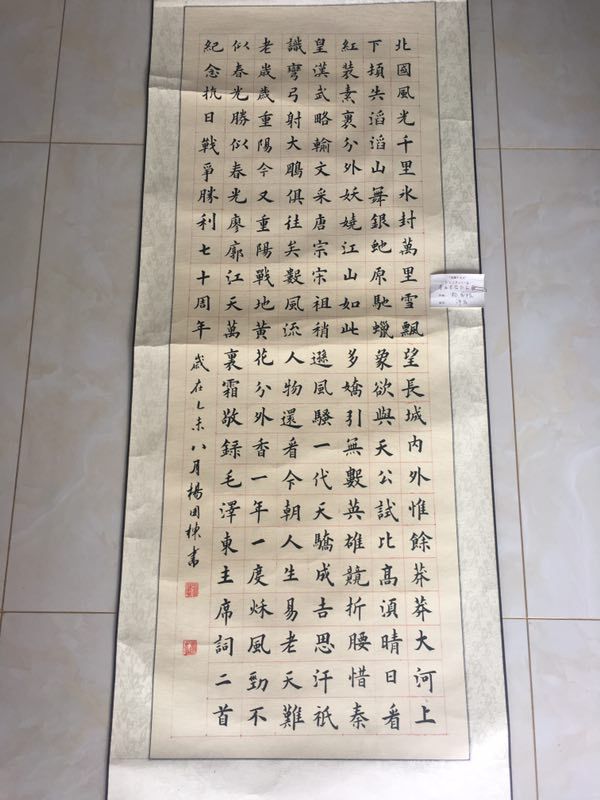 北國風光千里氷封萬里雪飄望長城内外惟餘莽莽大河上
下頓失滔滔山舞銀虵原馳蠟象欲與天公試比髙湏晴日看
紅装素裹分外妖嬈江山如此多嬌引無數英雄競折腰惜秦
皇漢武略輸文采唐宗宋祖稍遜風騷一代天驕成吉思汗祇
識彎弓射大鵰俱往矣數風流人物還看今朝人生易老天難
老歲歲重陽今又重陽戰地黄花分外香一年一度秌風勁不
似春光勝似春光廖廓江天萬裏霜敬録毛澤東主席詞二首
紀念抗日戰爭勝利七十周年歲在乙未八月楊国棟書